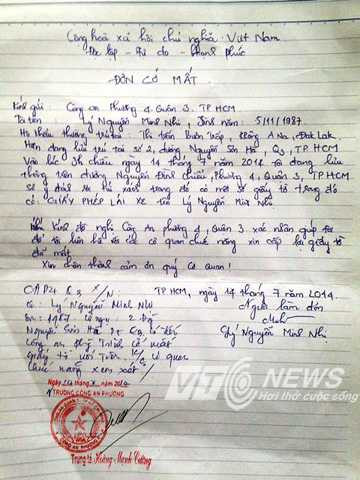 Cộng hoà xã hội chủ nghĩa Việt Nam
Độc lập - Tự do - Hạnh phúc
ĐƠN CỚ MẤT
Kính gửi: Công an Phường 4, Quận 3, TP HCM
Tôi tên: Lý Nguyễn Minh Nhị, Sinh năm: 5/11/1987
Hộ khẩu thường trú tại: Thị trấn Buôn Trấp, Krông A Na, Đak Lak.
Hiện đang lưu trú tại số 2, đường Nguyễn Sơn Hà, Q3, TP HCM
Vào lúc chiều ngày 14 tháng 7 năm 2014 tôi đang lưu
thông trên đường Nguyễn Đình Chiểu, Phường 4, Quận 3, TP HCM
có một số giấy tờ trong đó
có: GIẤY PHÉP LÁI XE tên Lý Nguyễn Minh Nhị
Nay Kính đề nghị Công An phường 4, Quận 3 xác nhận giúp tôi
để tôi liên hệ với cơ quan chức năng xin cấp lại giấy tờ
đã mất.
Xin chân thành cảm ơn quý cơ quan!
CAP4 Q3 X/N:
TP HCM, ngày 14 tháng 7 năm 2014.
Lý Nguyễn Minh Nhị
Người làm đơn
SN: 1987
Nguyễn Sơn Hà P4 Q3
Lý Nguyễn Minh Nhị
chức năng xem xét
Ngày
TRƯỞNG CÔNG AN PHƯỜNG
Trung tá Hoàng Mạnh Cường
VTC NEWS
Hơi thở cuộc sống